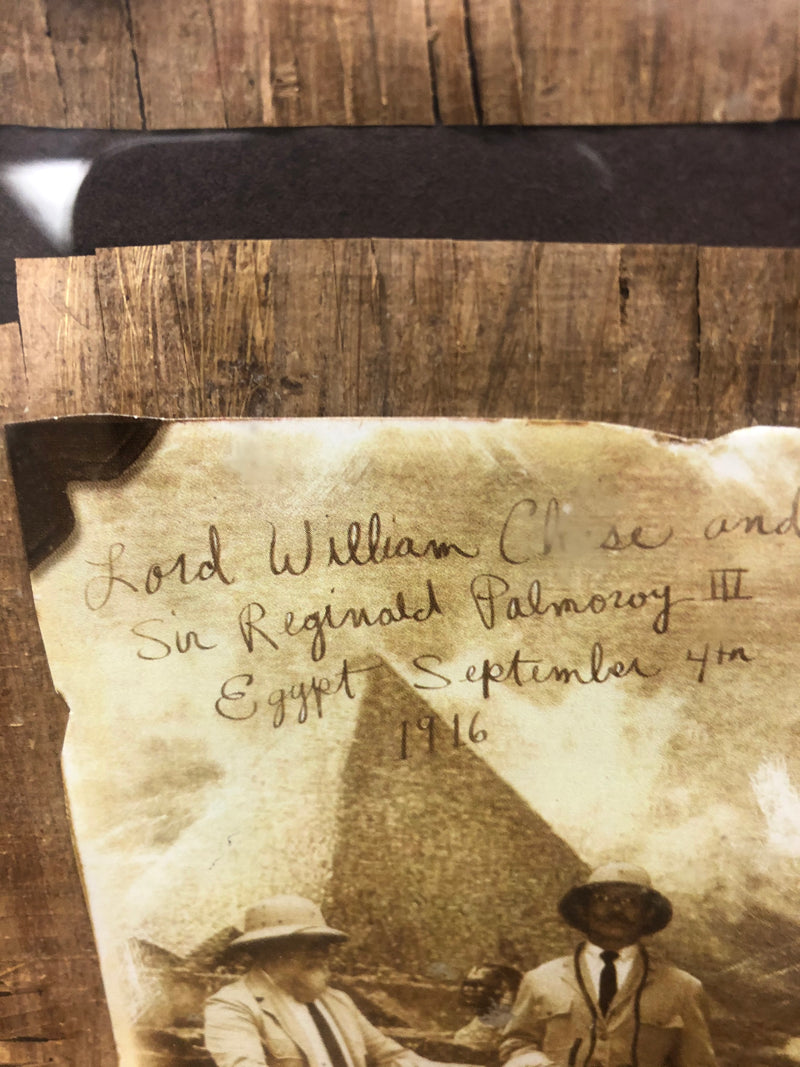 Lord William and
Sir Reginald Palmoroy III
Egypt September 4th
1916